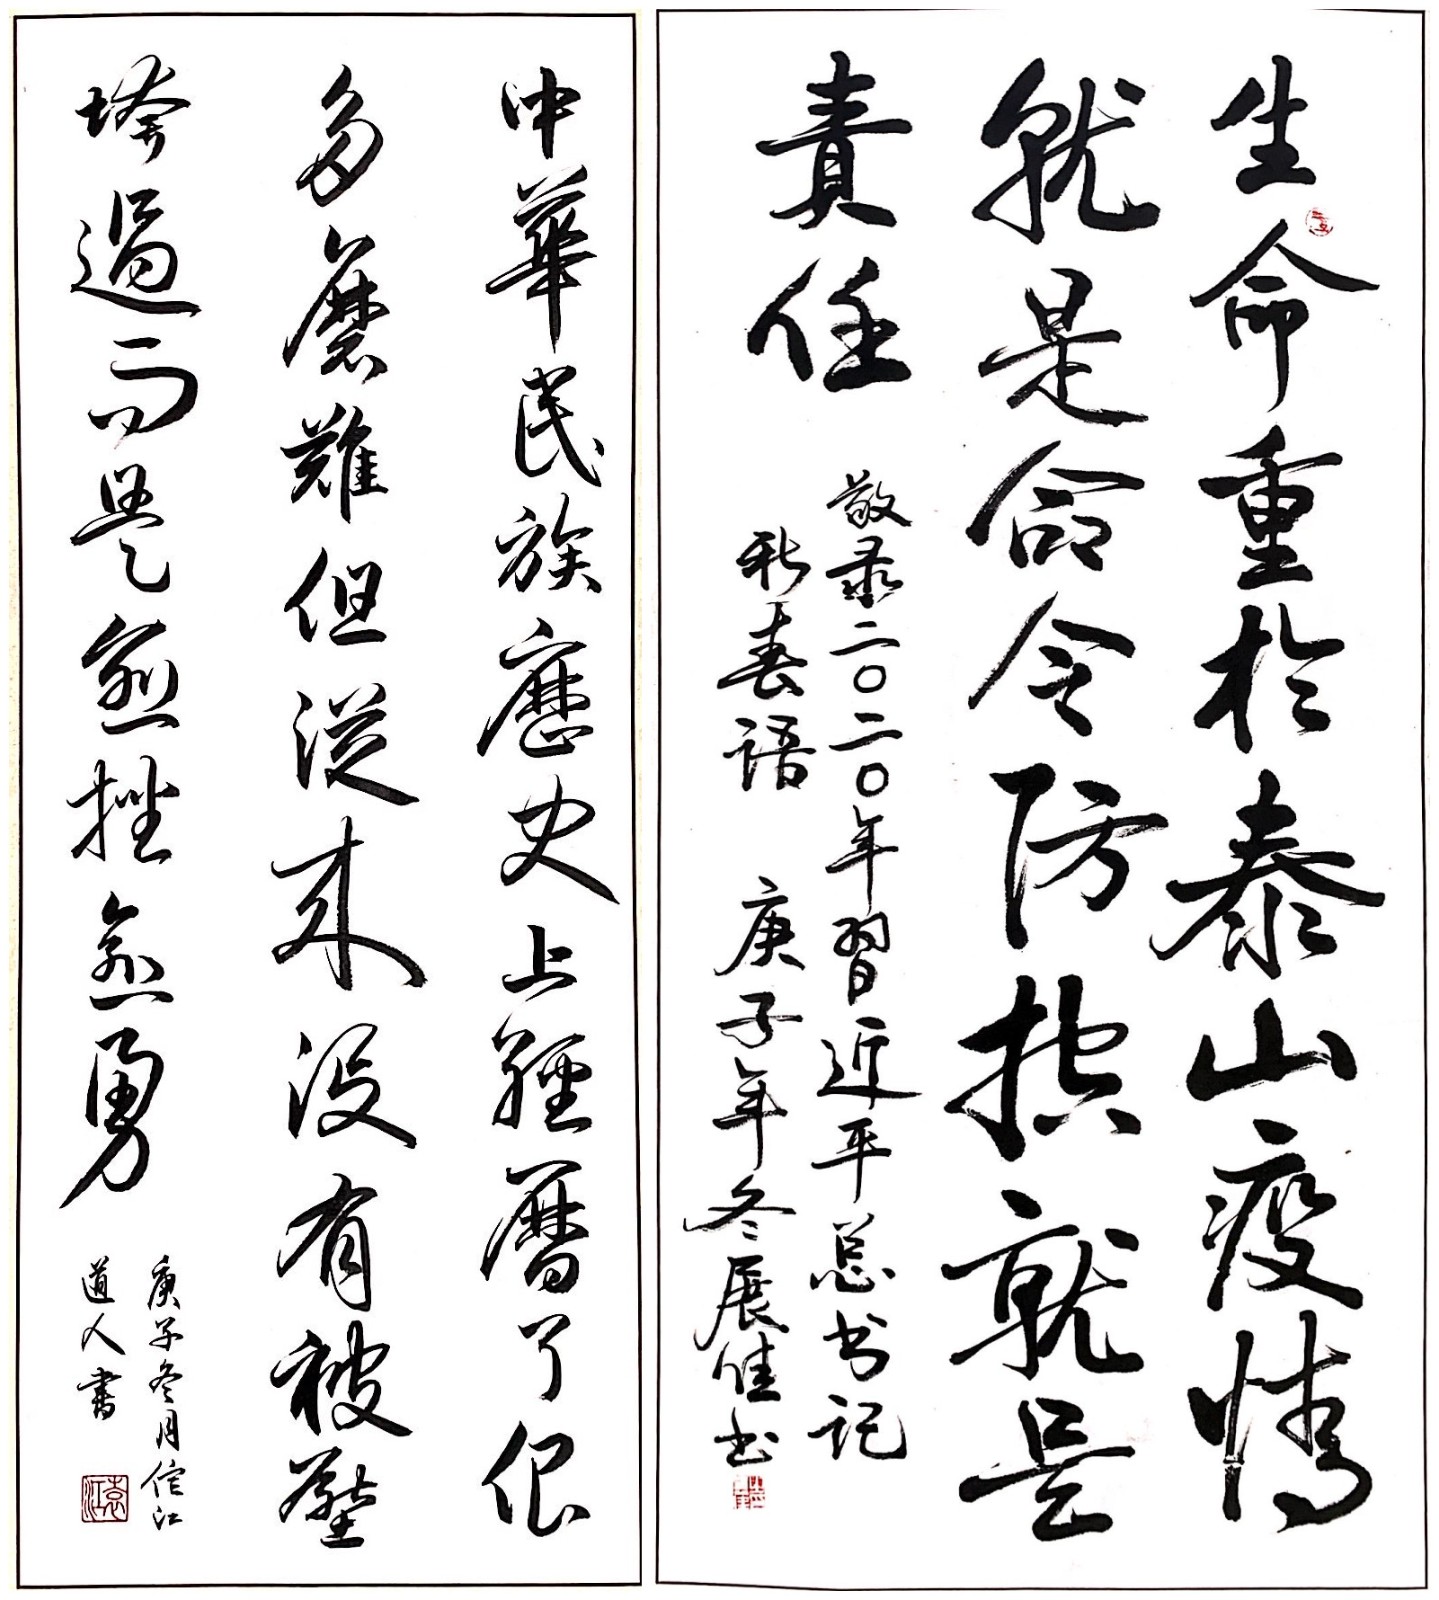 生命重於泰山疫情
就是命令防控就是
責任
敬录二〇二〇年習近平总书记
新春語 庚子年冬展佳书
中華民族歷史上經曆了很
多磨難但從來没有被壓
垮過而是愈挫愈勇
庚子冬月佗江
道人書